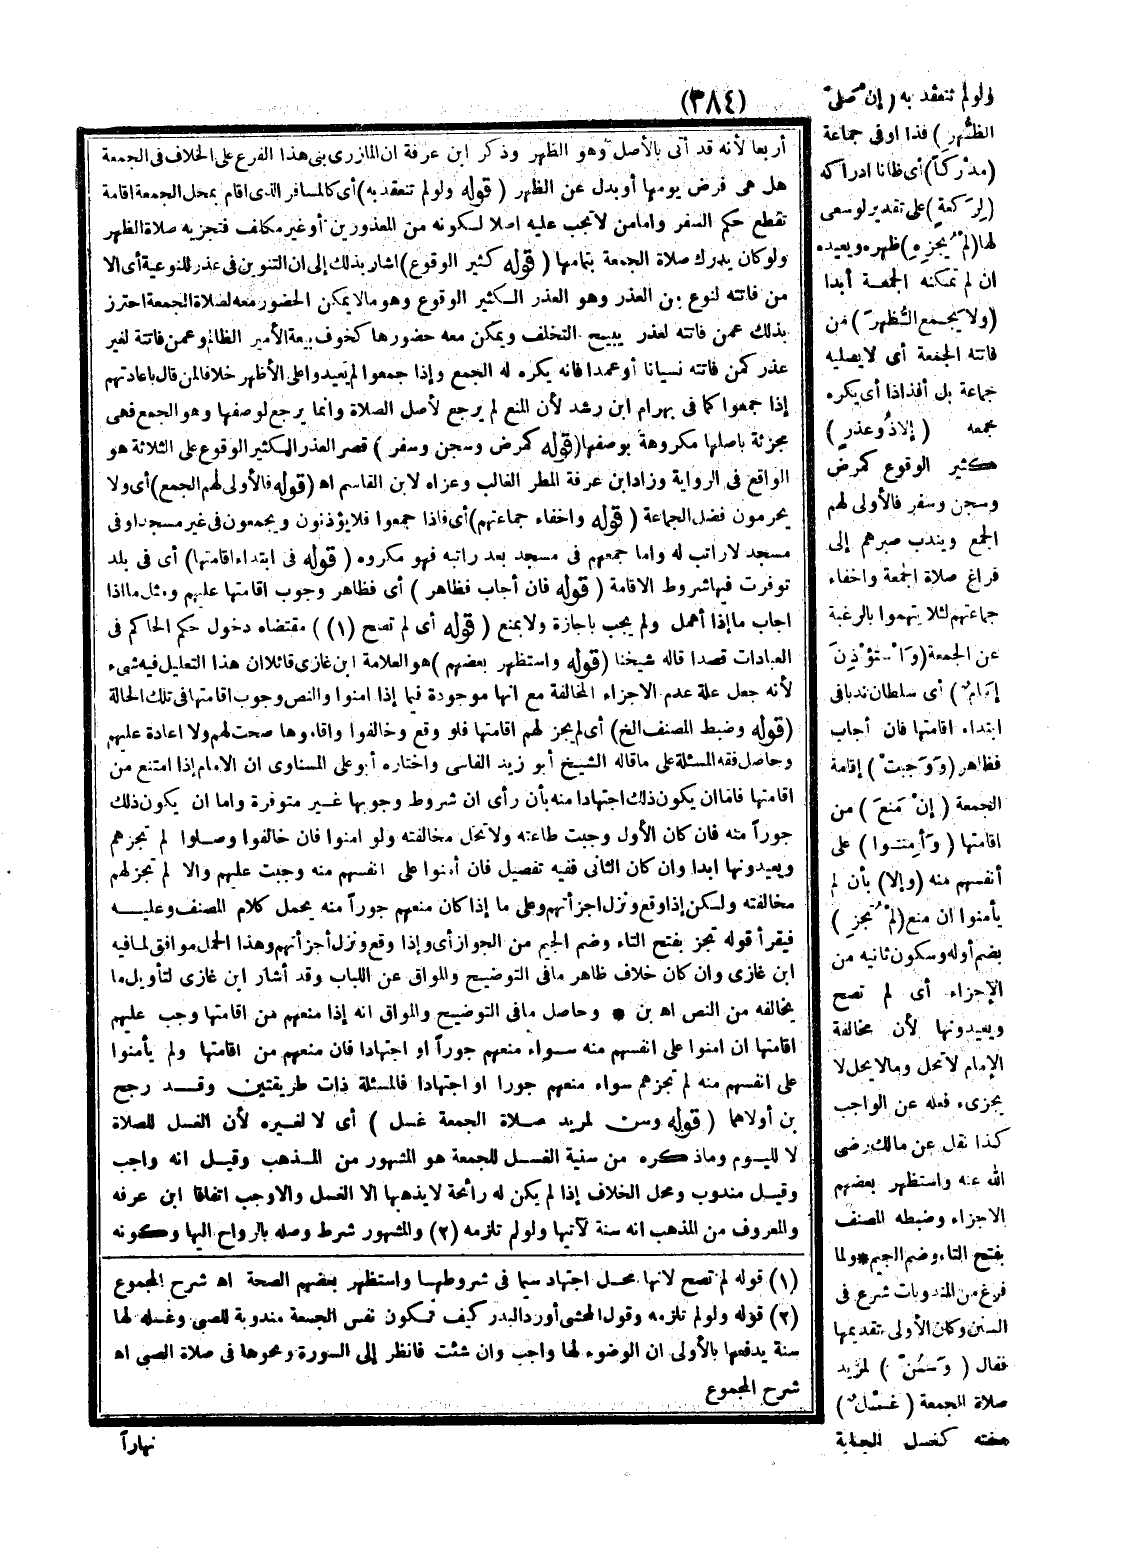 (٣٨٤)
ولولم تنعقد به (إن صلى
الظهر) فذا اوفى جماعة
(مدركاً) أى ظانا ادراكه
(لركعة) على تقدير لوسعى
لها (لم يجزه) ظهره ويعيده
ان لم تمكنه الجمعة أبدا
(ولا يجمع الظهر) من
فاتته الجمعة أى لا يصليه
جماعة بل أفذاذا أى يكره
جمعه (إلا ذو عذر)
كثير الوقوع كمرض
وسجن وسفر فالأولى لهم
الجمع ويندب صبرهم إلى
فراغ صلاة الجمعة واخفاء
جماعتهم لئلا يتهموا بالرغبة
عن الجمعة (واستؤذن
إمام) أى سلطان ندبا فى
ابتداء اقامتها فان أجاب
فظاهر (ووجبت) إقامة
الجمعة (إن منع) من
اقامتها (وأمنوا) على
أنفسهم منه (وإلا) بأن لم
يأمنوا ان منع (لم تجز)
بضم أوله وسكون ثانيه من
الإجزاء أى لم تصح
ويعيدونها لأن مخالفة
الإمام لا تحل وما لا يحل لا
يجزىء فعله عن الواجب
كذا نقل عن مالك رضى
الله عنه واستظهر بعضهم
الاجزاء وضبطه المصنف
بفتح التاء وضم الجيم * ولما
فرغ من المندوبات شرع فى
السنن وكان الأولى تقديمها
فقال (وسن) لمريد
صلاة الجمعة (غسل)
صفته كغسل الجنابة
أربعا لأنه قد أتى بالأصل وهو الظهر وذكر ابن عرفة ان المازرى بنى هذا الفرع على الخلاف فى الجمعة
هل هى فرض يومها أو بدل عن الظهر (قوله ولولم تنعقد به) أى كالمسافر الذى اقام بمحل الجمعة اقامة
تقطع حكم السفر واما من لا تجب عليه اصلا لكونه من المعذورين أو غير مكلف فتجزيه صلاة الظهر
ولوكان يدرك صلاة الجمعة بتمامها (قوله كثير الوقوع) اشار بذلك إلى ان التنوين فى عذر للنوعية أى الا
من فاتته لنوع من العذر وهو العذر الكثير الوقوع وهو مالا يمكن الحضور معه لصلاة الجمعة احترز
بذلك عمن فاتته لعذر يبيح التخلف ويمكن معه حضورها كخوف بيعة الأمير الظالم وعمن فاتته لغير
عذر كمن فاتته نسيانا أو عمدا فانه يكره له الجمع وإذا جمعوا لم يعيدوا على الأظهر خلافا لمن قال باعادتهم
إذا جمعوا كما فى بهرام ابن رشد لأن المنع لم يرجع لأصل الصلاة وانما يرجع لوصفها وهو الجمع فهى
مجزئة باصلها مكروهة بوصفها (قوله كمرض وسجن وسفر) قصر العذر الكثير الوقوع على الثلاثة هو
الواقع فى الرواية وزاد ابن عرفة المطر الغالب وعزاه لابن القاسم اه (قوله فالأولى لهم الجمع) أى ولا
يحرمون فضل الجماعة (قوله واخفاء جماعتهم) أى فاذا جمعوا فلا يؤذنون ويجمعون فى غير مسجد اوفى
مسجد لا راتب له واما جمعهم فى مسجد بعد راتبه فهو مكروه (قوله فى ابتداء اقامتها) أى فى بلد
توفرت فيها شروط الاقامة (قوله فان أجاب فظاهر) أى فظاهر وجوب اقامتها عليهم ومثل ما اذا
اجاب ما إذا أهمل ولم يجب باجازة ولا بمنع (قوله أى لم تصح (١)) مقتضاه دخول حكم الحاكم فى
العبادات قصدا قاله شيخنا (قوله واستظهر بعضهم) هو العلامة ابن غازى قائلا ان هذا التعليل فيه شىء
لأنه جعل علة عدم الاجزاء المخالفة مع انها موجودة فيما إذا امنوا والنص وجوب اقامتها فى تلك الحالة
(قوله وضبط المصنف الخ) أى لم يجز لهم اقامتها فلو وقع وخالفوا واقاموها صحت لهم ولا اعادة عليهم
وحاصل فقه المسئلة على ماقاله الشيخ أبو زيد الفاسى واختاره أبو على المسناوى ان الامام إذا امتنع من
اقامتها فاما ان يكون ذلك اجتهادا منه بأن رأى ان شروط وجوبها غير متوفرة واما ان يكون ذلك
جوراً منه فان كان الأول وجبت طاعته ولا تحل مخالفته ولو امنوا فان خالفوا وصلوا لم تجزهم
ويعيدونها ابدا وان كان الثانى ففيه تفصيل فان أمنوا على انفسهم منه وجبت عليهم والا لم تجز لهم
مخالفته ولكن إذا وقع ونزل اجزأتهم وعلى ما إذا كان منعهم جوراً منه يحمل كلام المصنف وعليه
فيقرأ قوله تجز بفتح التاء وضم الجيم من الجواز أى وإذا وقع ونزل أجزأتهم وهذا الحمل موافق لما فيه
ابن غازى وان كان خلاف ظاهر مافى التوضيح والمواق عن اللباب وقد أشار ابن غازى لتأويل ما
يخالفه من النص اه بن * وحاصل مافى التوضيح والمواق انه إذا منعهم من اقامتها وجب عليهم
اقامتها ان امنوا على انفسهم منه سواء منعهم جوراً او اجتهادا فان منعهم من اقامتها ولم يأمنوا
على انفسهم منه لم تجزهم سواء منعهم جورا او اجتهادا فالمسئلة ذات طريقتين وقد رجح
بن أولاهما (قوله وسن لمريد صلاة الجمعة غسل) أى لا لغيره لأن الغسل للصلاة
لا لليوم وماذكره من سنية الغسل للجمعة هو المشهور من المذهب وقيل انه واجب
وقيل مندوب ومحل الخلاف إذا لم يكن له رائحة لا يذهبها الا الغسل والاوجب اتفاقا ابن عرفه
والمعروف من المذهب انه سنة لآتيها ولولم تلزمه (٢) والمشهور شرط وصله بالرواح اليها وكونه
(١) قوله لم تصح لانها محل اجتهاد سيما فى شروطها واستظهر بعضهم الصحة اه شرح المجموع
(٢) قوله ولولم تلزمه وقول المحشى أورد البدر كيف تكون نفس الجمعة مندوبة للصبى وغسله لها
سنة يدفعها بالأولى ان الوضوء لها واجب وان شئت فانظر إلى السورة ونحوها فى صلاة الصبى اه
شرح المجموع
نهاراً